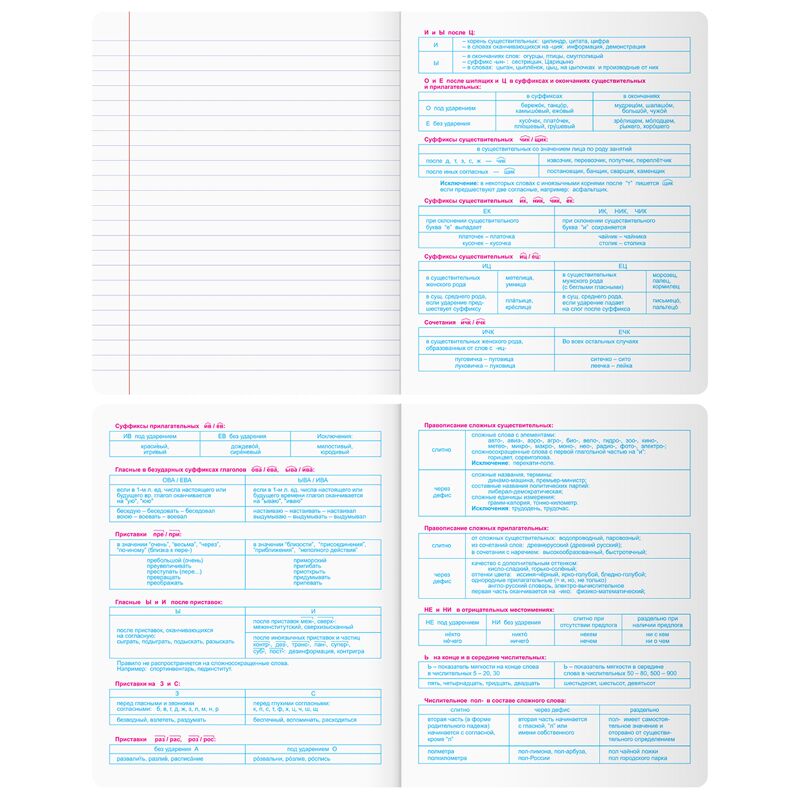 И и Ы после Ц:
И
– корень существительных: цилиндр, цитата, цифра
– в словах оканчивающихся на -ция: информация, демонстрация
Ы
– в окончаниях слов: огурцы, птицы, смуглолицый
– суффикс -ын- : сестрицын, Царицыно
– в словах: цыган, цыплёнок, цыц, на цыпочках и производные от них
О и Е после шипящих и Ц в суффиксах и окончаниях существительных
и прилагательных:
в суффиксах
в окончаниях
О под ударением
бережок, танцор,
камышовый, ежовый
мудрецом, шалашом,
большой, чужой
Е без ударения
кусочек, платочек,
плюшевый, грушевый
зрелищем, молодцем,
рыжего, хорошего
Суффиксы существительных чик / щик:
в существительных со значением лица по роду занятий
после д, т, з, с, ж — чик
извозчик, перевозчик, попутчик, переплётчик
после иных согласных — щик
постановщик, банщик, сварщик, каменщик
Исключение: в некоторых словах с иноязычными корнями после "т" пишется щик
если предшествуют две согласные, например: асфальтщик.
Суффиксы существительных ик, ник, чик, ек:
ЕК
ИК, НИК, ЧИК
при склонении существительного
буква "е" выпадает
при склонении существительного
буква "и" сохраняется
платочек – платочка
кусочек – кусочка
чайник – чайника
столик – столика
Суффиксы существительных иц / ец:
ИЦ
ЕЦ
в существительных
женского рода
метелица,
умница
в существительных
мужского рода
(с беглыми гласными)
морозец,
палец,
кормилец
в сущ. среднего рода,
если ударение пред-
шествует суффиксу
платьице,
креслице
в сущ. среднего рода,
если ударение падает
на слог после суффикса
письмецо,
пальтецо
Сочетания ичк / ечк
ИЧК
ЕЧК
в существительных женского рода,
образованных от слов с -иц-
Во всех остальных случаях
пуговичка – пуговица
луковичка – луковица
ситечко – сито
леечка – лейка
Суффиксы прилагательных ив / ев:
ИВ под ударением
ЕВ без ударения
Исключения:
красивый,
игривый
дождевой,
сиреневый
милостивый,
юродивый
Гласные в безударных суффиксах глаголов ова / ева, ыва / ива:
ОВА / ЕВА
ЫВА / ИВА
если в 1-м л. ед. числа настоящего или
будущего вр. глагол оканчивается
на "ую", "юю"
если в 1-м л. ед. числа настоящего или
будущего времени глагол оканчивается
на "ываю", "иваю"
беседую – беседовать – беседовал
воюю – воевать – воевал
настаиваю – настаивать – настаивал
выдумываю – выдумывать – выдумывал
Приставки пре / при:
в значении "очень", "весьма", "через",
"по-иному" (близка к пере-)
в значении "близости", "присоединения",
"приближения", "неполного действия"
пребольшой (очень)
преувеличивать
преступать (пере...)
превращать
преображать
приморский
пригибать
приоткрыть
придумывать
припевать
Гласные Ы и И после приставок:
Ы
И
после приставок, оканчивающихся
на согласную:
сыграть, подыграть, подыскать, разыскать
после приставок меж-, сверх-
межинститутский, сверхизысканный
после иноязычных приставок и частиц
контр-, дез-, транс-, пан-, супер-,
суб-, пост-: дезинформация, контригра
Правило не распространяется на сложносокращенные слова.
Например: спортинвентарь, пединститут.
Приставки на З и С:
З
С
перед гласными и звонкими
согласными: б, в, г, д, ж, з, л, м, н, р
перед глухими согласными:
к, п, с, т, ф, х, ц, ч, ш, щ
безводный, взлететь, раздумать
беспечный, вспоминать, расходиться
Приставки раз / рас, роз / рос:
без ударения А
под ударением О
развалить, разлив, расписание
розвальни, розлив, роспись
Правописание сложных существительных:
слитно
сложные слова с элементами:
авто-, авиа-, аэро-, агро-, био-, вело-, гидро-, зоо-, кино-,
метео-, микро-, макро-, моно-, нео-, радио-, фото-, электро-;
сложносокращенные слова с первой глагольной частью на "и":
горицвет, сорвиголова.
Исключение: перекати-поле.
через
дефис
сложные названия, термины:
динамо-машина, премьер-министр;
составные названия политических партий:
либерал-демократическая;
сложные единицы измерения:
грамм-калория, тонно-километр.
Исключения: трудодень, трудочас.
Правописание сложных прилагательных:
слитно
от сложных существительных: водопроводный, паровозный;
из сочетаний слов: древнерусский (древний русский);
в сочетании с наречием: высокообразованный, быстротечный;
через
дефис
качество с дополнительным оттенком:
кисло-сладкий, горько-солёный;
оттенки цвета: иссиня-чёрный, ярко-голубой, бледно-голубой;
однородные прилагательные (= и, но, не только):
англо-русский словарь, электро-вычислительное
первая часть оканчивается на -ико: физико-математический;
НЕ и НИ в отрицательных местоимениях:
НЕ под ударением
НИ без ударения
слитно при
отсутствии предлога
раздельно при
наличии предлога
некто
нечего
никто
ничего
некем
ничем
ни с кем
ни о чем
Ь на конце и в середине числительных:
Ь – показатель мягкости на конце слова
в числительных 5 – 20, 30
Ь – показатель мягкости в середине
слова в числительных 50 – 80, 500 – 900
пять, четырнадцать, тридцать, двадцать
шестьдесят, шестьсот, девятьсот
Числительное пол- в составе сложного слова:
слитно
через дефис
раздельно
вторая часть (в форме
родительного падежа)
начинается с согласной,
кроме "л"
вторая часть начинается
с гласной, "л" или
имени собственного
пол- имеет самостоя-
тельное значение и
оторвано от существи-
тельного определением
полметра
полкилометра
пол-лимона, пол-арбуза,
пол-России
пол чайной ложки
пол городского парка